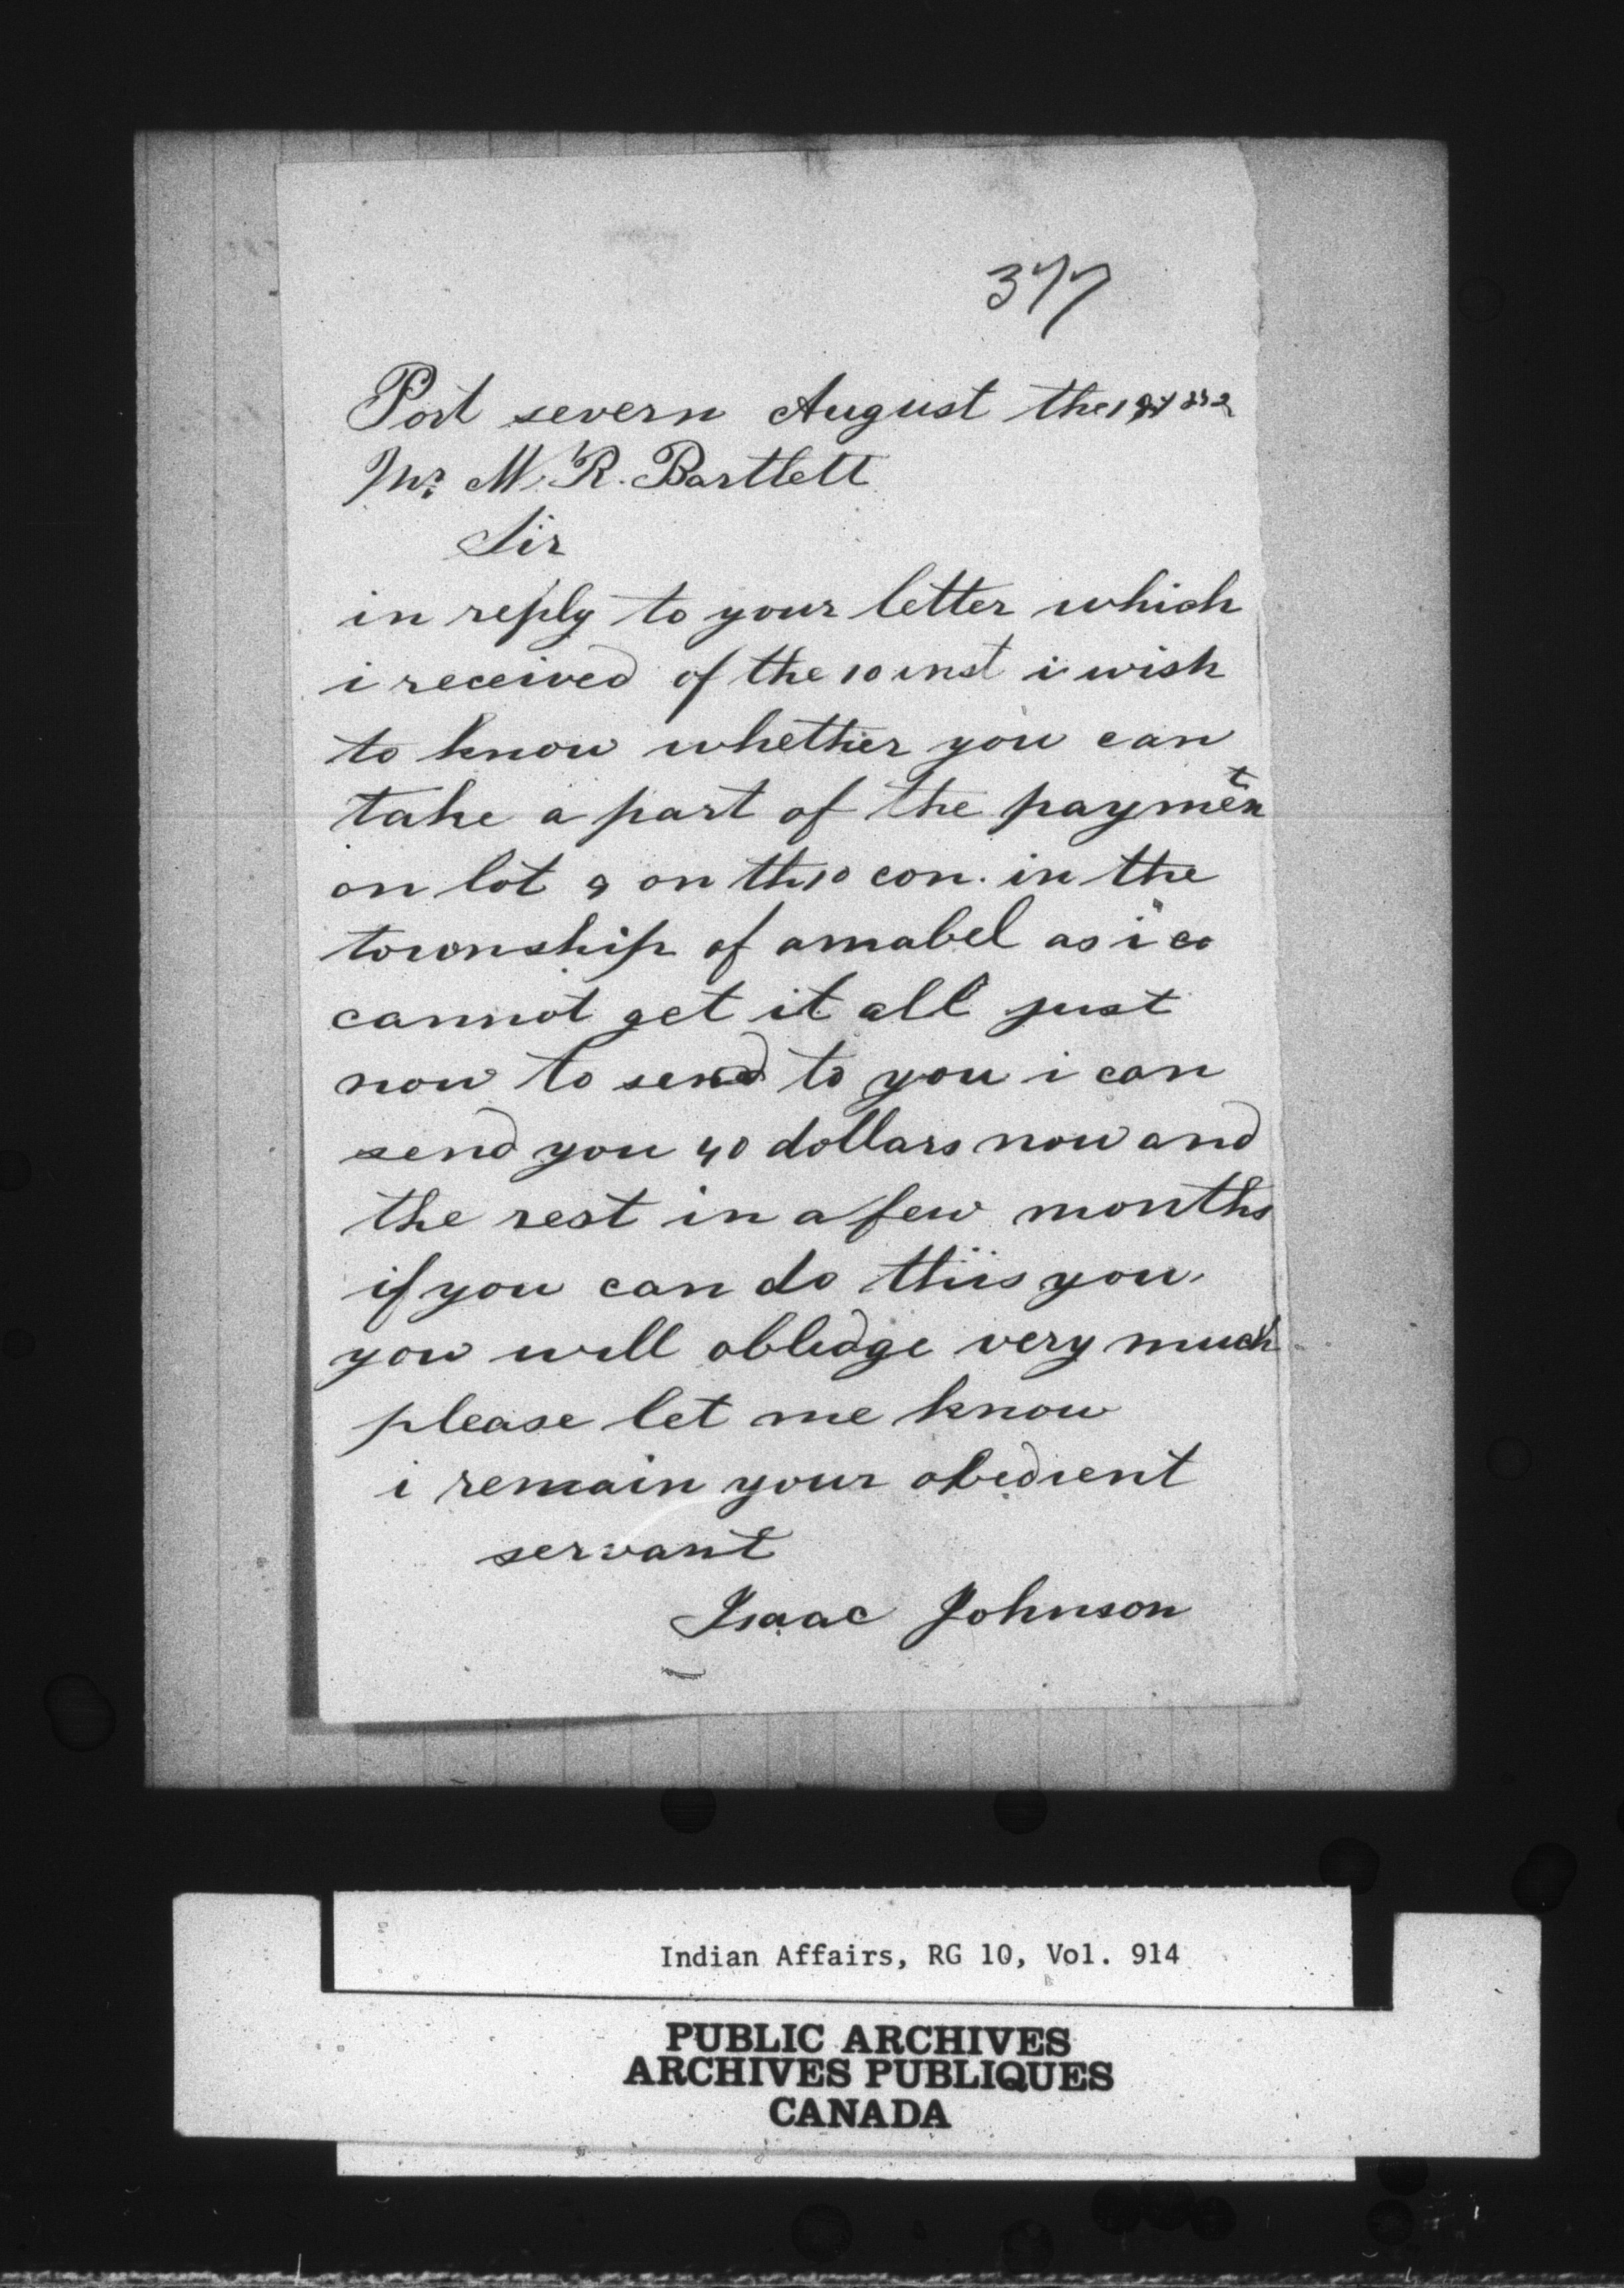 377
Port severn August the
Mr M. R. Bartlett
Sir
in reply to your letter which
i received of the 10 inst i wish
to know whether you can
take a part of the payment
on lot 9 on th 10 con. in the
township of amabel as i co
cannot get it all just
now to send to you i can
send you 40 dollars now and
the rest in a few months
if you can do this you
you will obledge very much
please let me know
i remain your obedient
servant
Isaac Johnson
Indian Affairs, RG 10, Vol. 914
PUBLIC ARCHIVES
ARCHIVES PUBLIQUES
CANADA